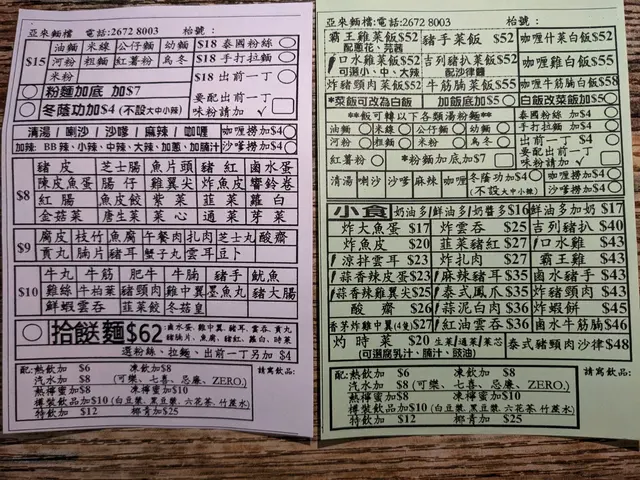 亞來麵檔 電話:2672 8003 枱號:
$15 油麵 米線 公仔麵 幼麵
河粉 粗麵 紅薯粉 烏冬
米粉
$18 泰國粉絲
$18 手打拉麵
$18 出前一丁
要配出前一丁
味粉請加 ✓
粉麵加底 加$7
冬蔭功加$4 (不設大中小辣)
清湯 / 喇沙 / 沙嗲 / 麻辣 / 咖喱
加辣: BB辣、小辣、中辣、大辣、加蔥、加腩汁
咖喱撈加$4
沙嗲撈加$4
$8
豬皮 芝士腸 魚片頭 豬紅 鹵水蛋
陳皮魚蛋 腸仔 雞翼尖 炸魚皮 響鈴卷
紅腸 魚皮餃 紫菜 韮菜 蘿白
金菇菜 唐生菜 菜心 通菜 芽菜
$9
腐皮 枝竹 魚腐 午餐肉 扎肉 芝士丸 酸齋
貢丸 腩片 豬耳 蟹子丸 雲耳 豆卜
$10
牛丸 牛筋 肥牛 牛腩 豬手 魷魚
雞絲 牛柏葉 豬頸肉 雞中翼 墨魚丸 豬大腸
鮮蝦雲吞 韮菜餃 冬菇皇
拾餸麵$62
:鹵水蛋、雞中翼、豬耳、雲吞、貢丸
豬腩片、魚腐、豬紅、蘿白、時菜
選粉絲、拉麵、出前一丁另加 $4
配:熱飲加 $6 凍飲加$8 請寫飲品:
汽水加 $8 (可樂、七喜、忌廉、ZERO.)
熱檸蜜加$8 凍檸蜜加$10
樽裝飲品加$10 (白豆漿、黑豆漿、六花茶、竹蔗水)
特飲加 $12 椰青加$25
亞來麵檔:電話:2672 8003 枱號:
霸王雞菜飯$52
配蔥花、芫茜
豬手菜飯 $52
咖喱什菜白飯$52
口水雞菜飯$52
可選小、中、大辣
吉列豬扒菜飯$52
配沙律醬
咖喱雞白飯$55
炸豬頸菜飯$55 牛筋腩菜飯$55 咖喱牛筋腩白飯$58
*菜飯可改為白飯 加飯底加$5 白飯改菜飯加$5
**飯可轉以下各類湯粉麵**
油麵 米線 公仔麵 幼麵
河粉 粗麵 米粉 烏冬
紅薯粉 *粉麵加底加$7
泰國粉絲 加$4
手打拉麵 加$4
出前一丁 加$4
要配出前一丁
味粉請加 ✓
清湯 喇沙 沙嗲 麻辣 咖喱
冬蔭功加$4
(不設大中小辣)
咖喱撈加$4
沙嗲撈加$4
小食 奶油多/鮮油多/奶醬多$16 鮮油多加奶 $17
炸大魚蛋 $17 炸雲吞 $25 吉列豬扒 $40
炸魚皮 $20 韮菜豬紅 $27 口水雞 $43
涼拌雲耳 $23 炸扎肉 $27 霸王雞 $43
蒜香辣皮蛋$23 麻辣豬耳 $35 鹵水豬手 $43
蒜香辣雞翼尖$25 泰式鳳爪 $35 炸豬頸肉 $43
酸齋 $26 蒜泥白肉 $36 炸蝦餅 $45
香茅炸雞中翼(4隻)$27 紅油雲吞 $36 鹵水牛筋腩$46
灼時菜 $20 生菜/通菜/菜芯 泰式豬頸肉沙律$48
(可選腐乳汁、腩汁、豉油)
配:熱飲加 $6 凍飲加$8 請寫飲品:
汽水加 $8 (可樂、七喜、忌廉、ZERO.)
熱檸蜜加$8 凍檸蜜加$10
樽裝飲品加$10 (白豆漿、黑豆漿、六花茶、竹蔗水)
特飲加 $12 椰青加 $25